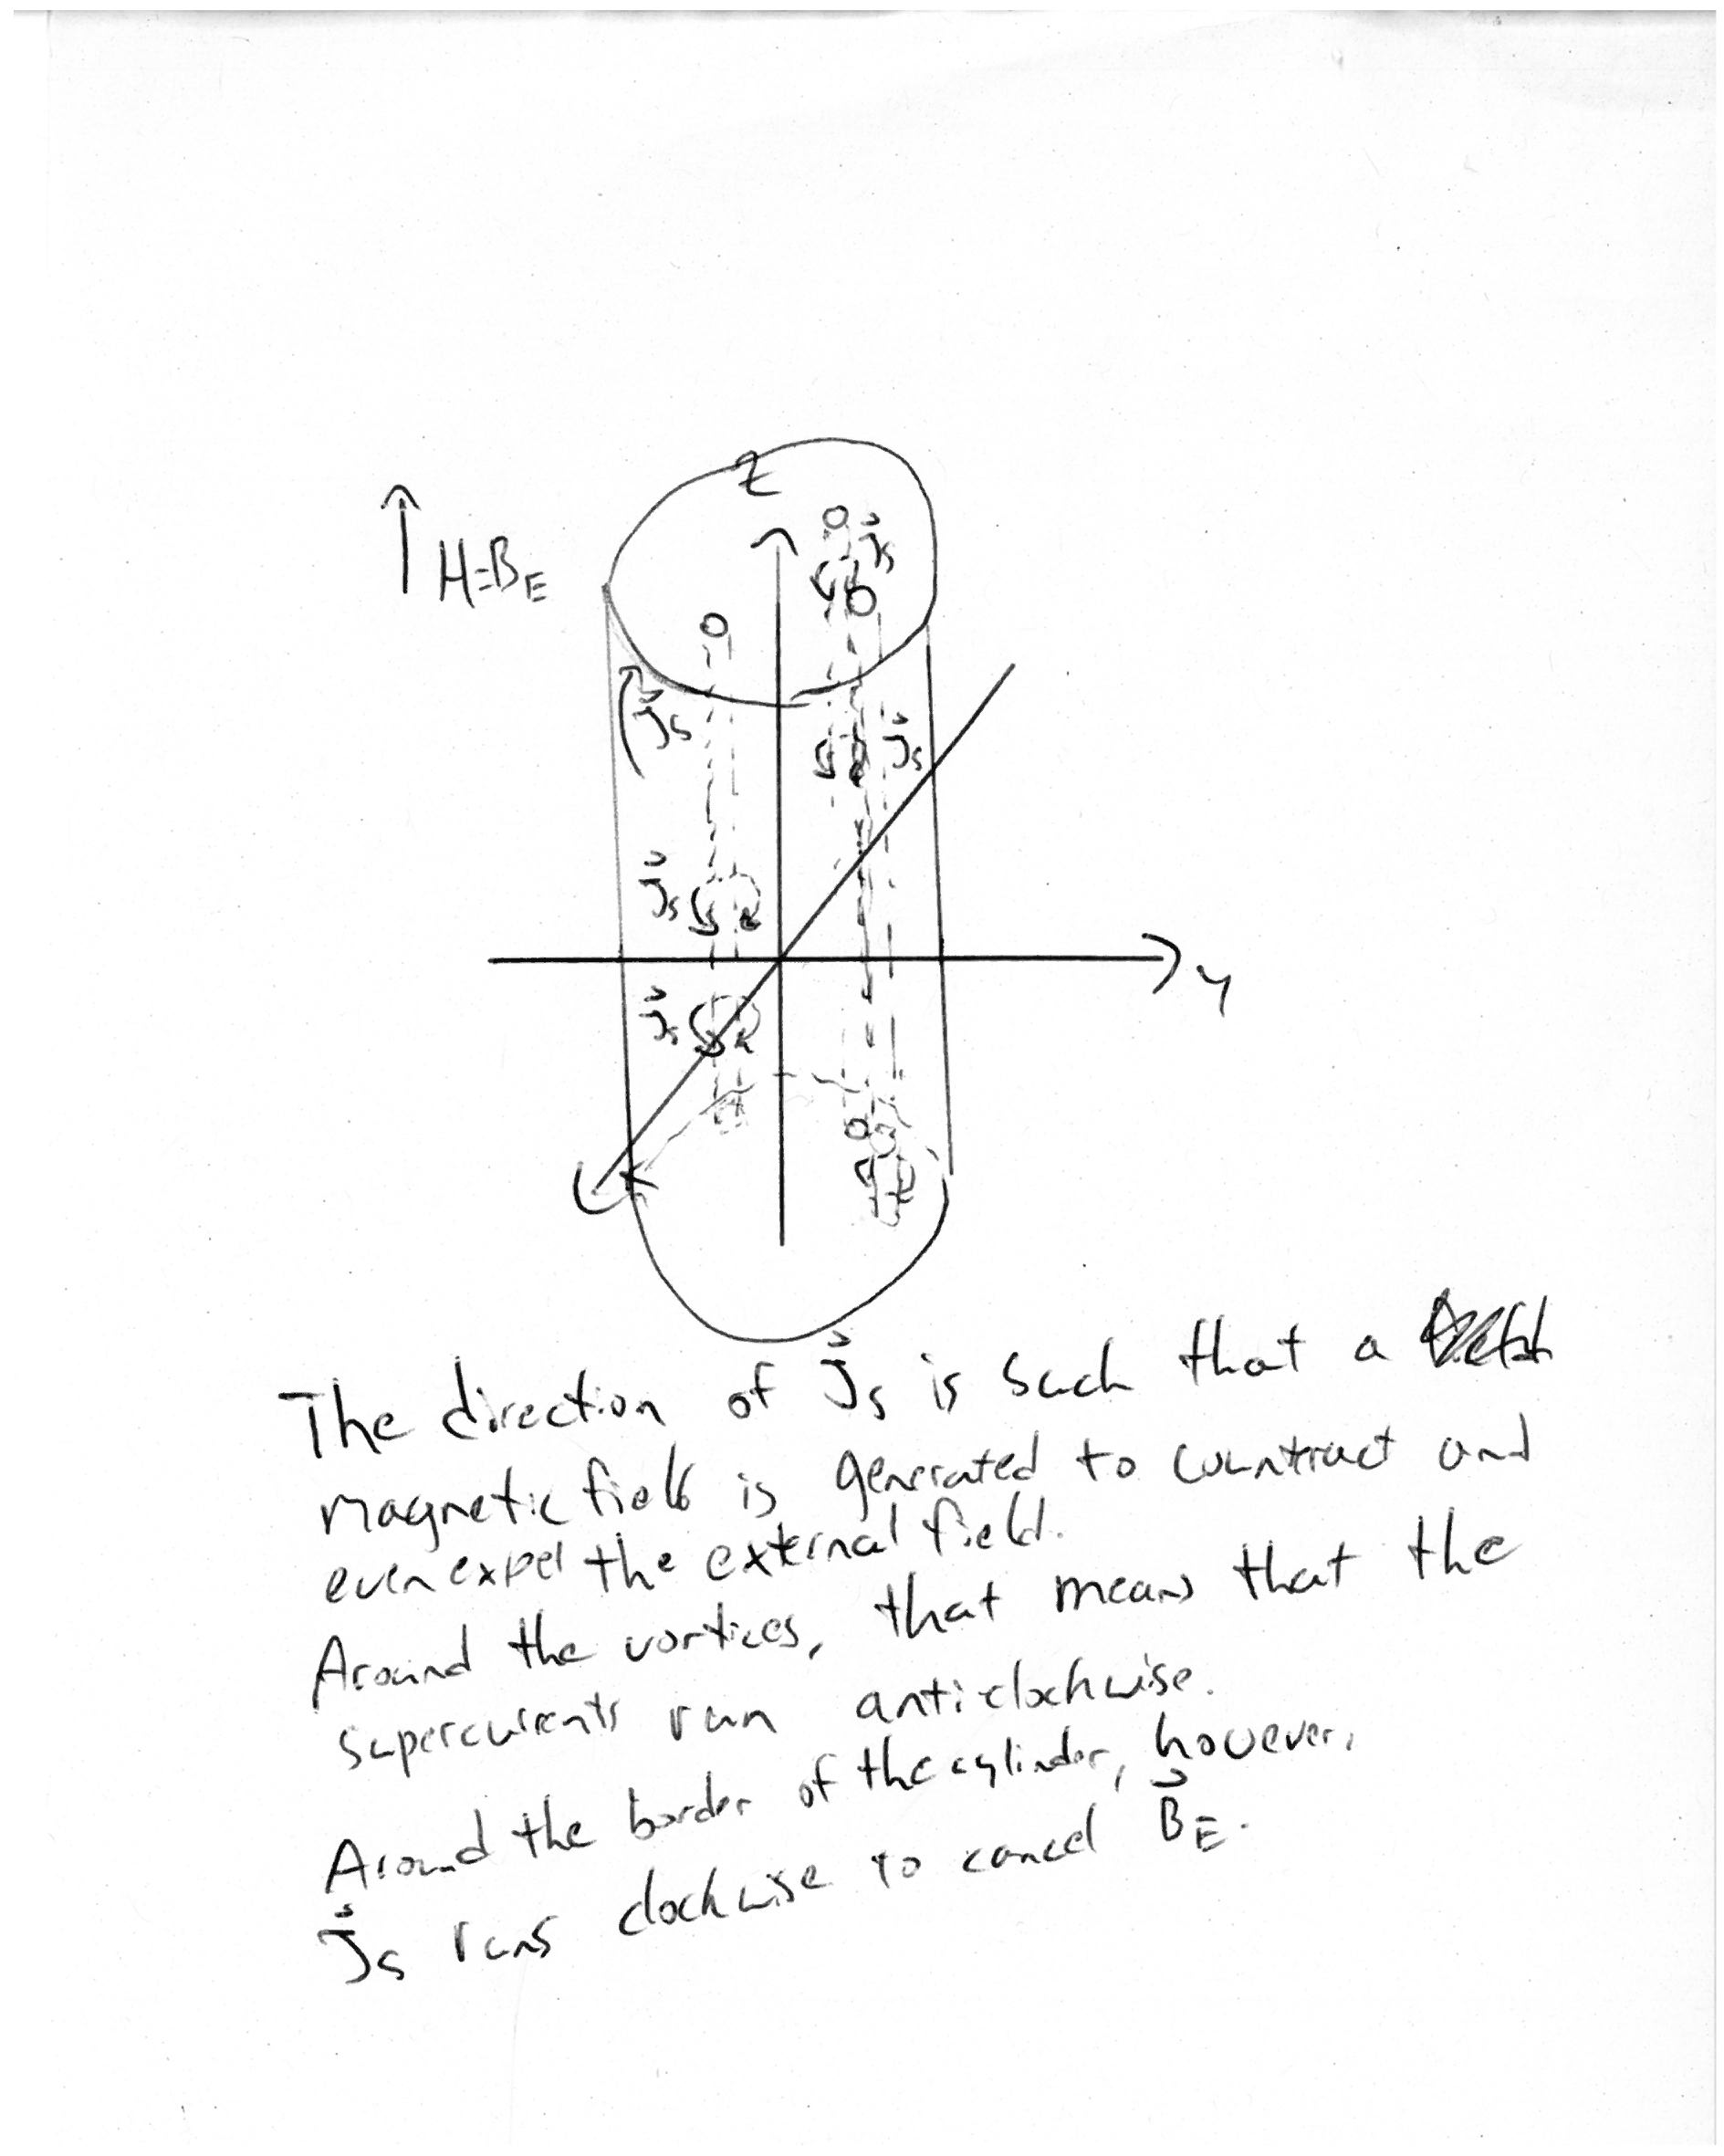 z
H=B_E
j⃗_s
j⃗_s
j⃗_s
j⃗_s
y
j⃗_s
x
The direction of j⃗_s is such that a
magnetic field is generated to countract and
even expel the external field.
Around the vortices, that means that the
supercurrents run anticlockwise.
Around the border of the cylinder, however,
j⃗_s runs clockwise to cancel B⃗_E.